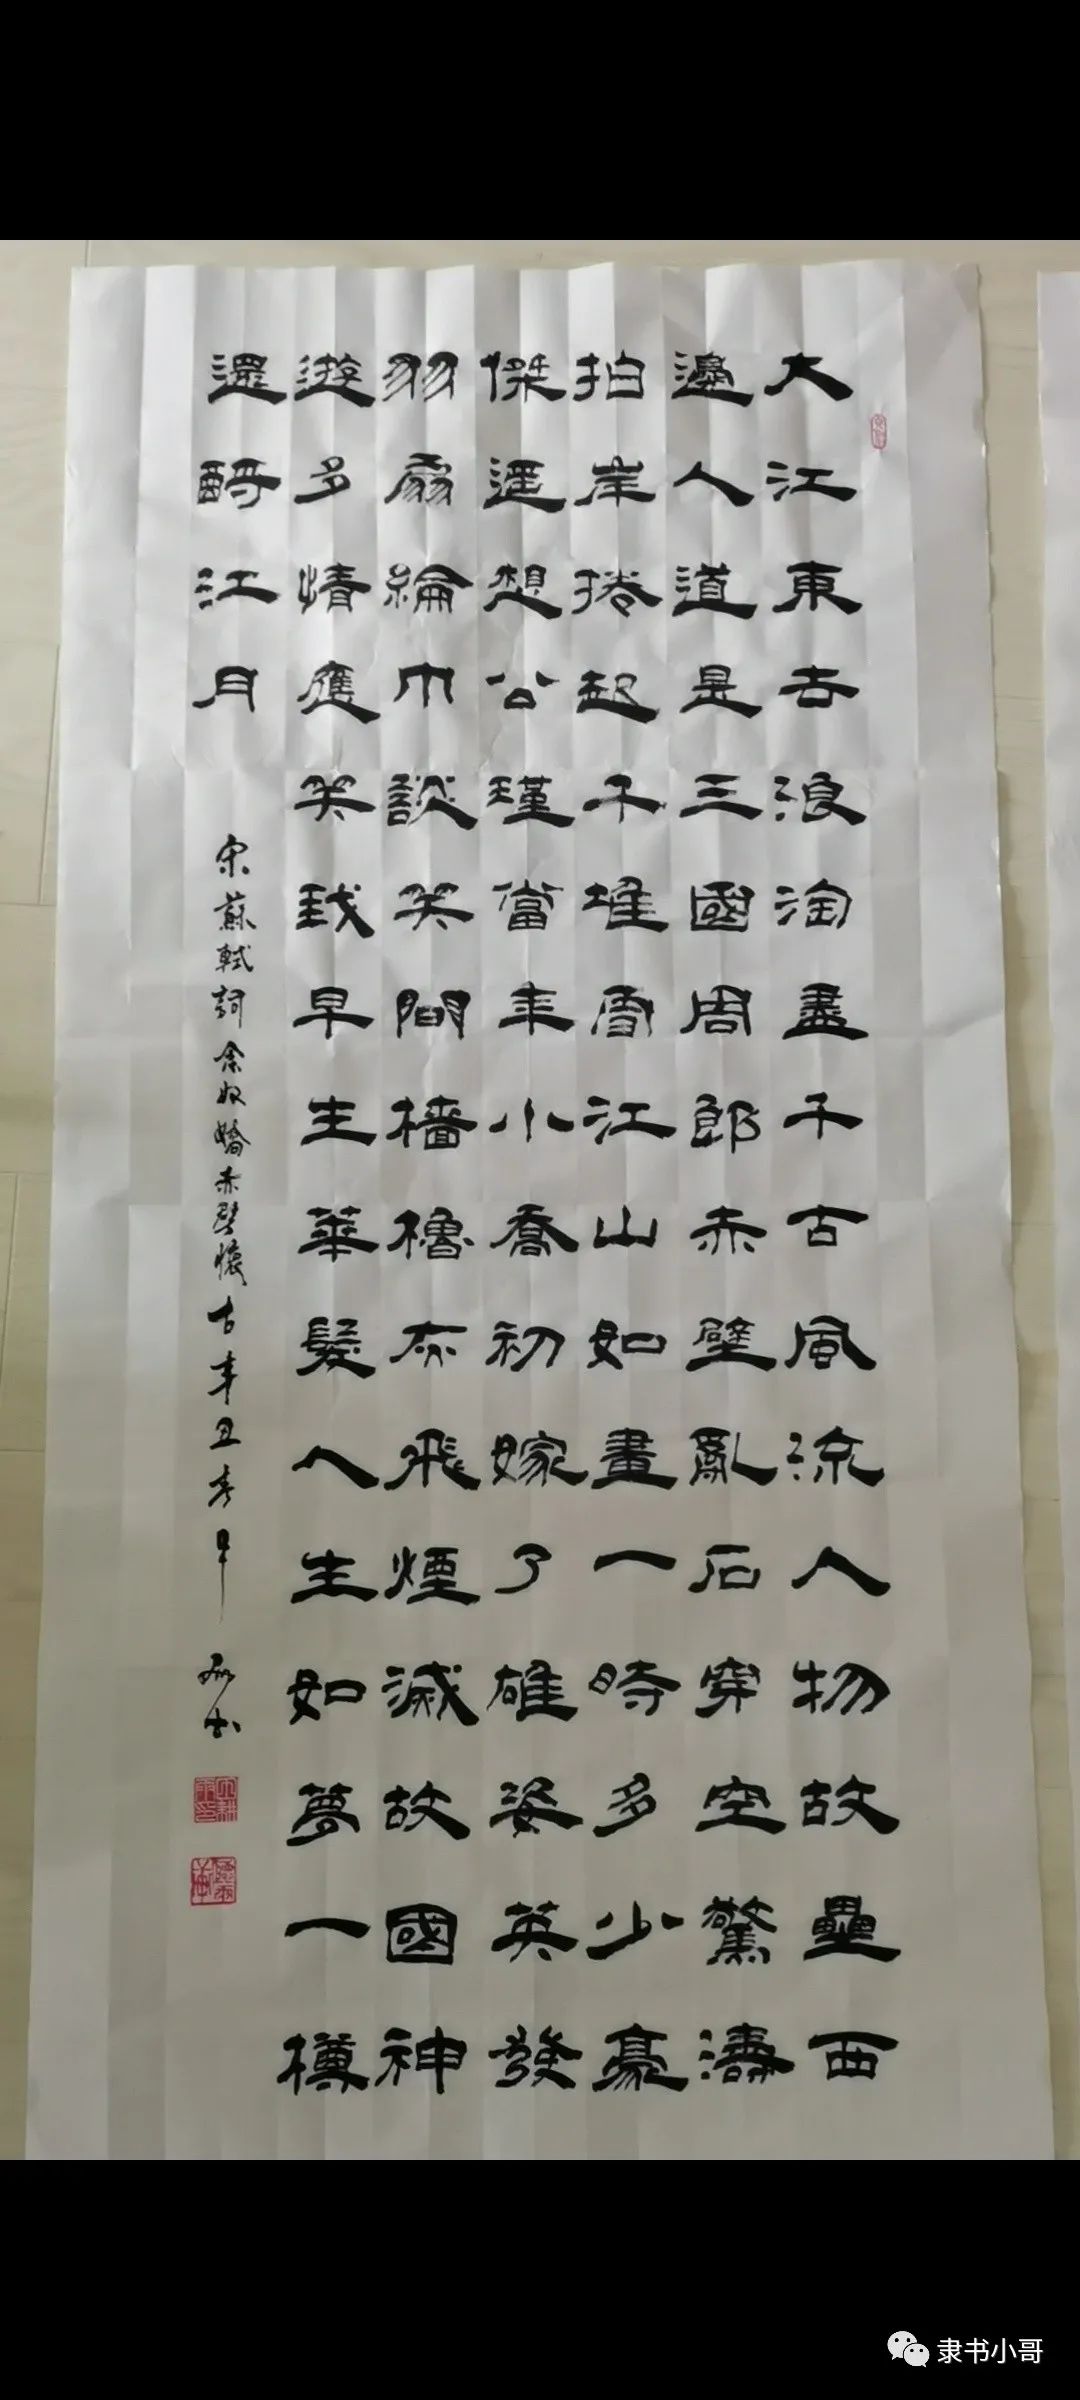 大江東去浪淘盡千古風流人物故壘西
邊人道是三國周郎赤壁亂石穿空驚濤
拍岸捲起千堆雪江山如畫一時多少豪
傑遥想公瑾當年小喬初嫁了雄姿英發
羽扇綸巾談笑間檣櫓灰飛煙滅故國神
遊多情應笑我早生華髮人生如夢一樽
還酹江月
宋蘇軾詞念奴嬌赤壁懷古辛丑春早
隶书小哥